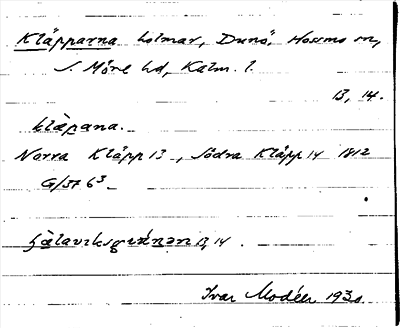 Kläpparna holmar, Dunö, Hossmo sn,
S. Möre hd, Kalm. l.
13, 14.
klàpana.
Norra Kläpp 13, Södra Kläpp 14 1812
G/37 6³
13, 14.
Ivar Modéer 1930